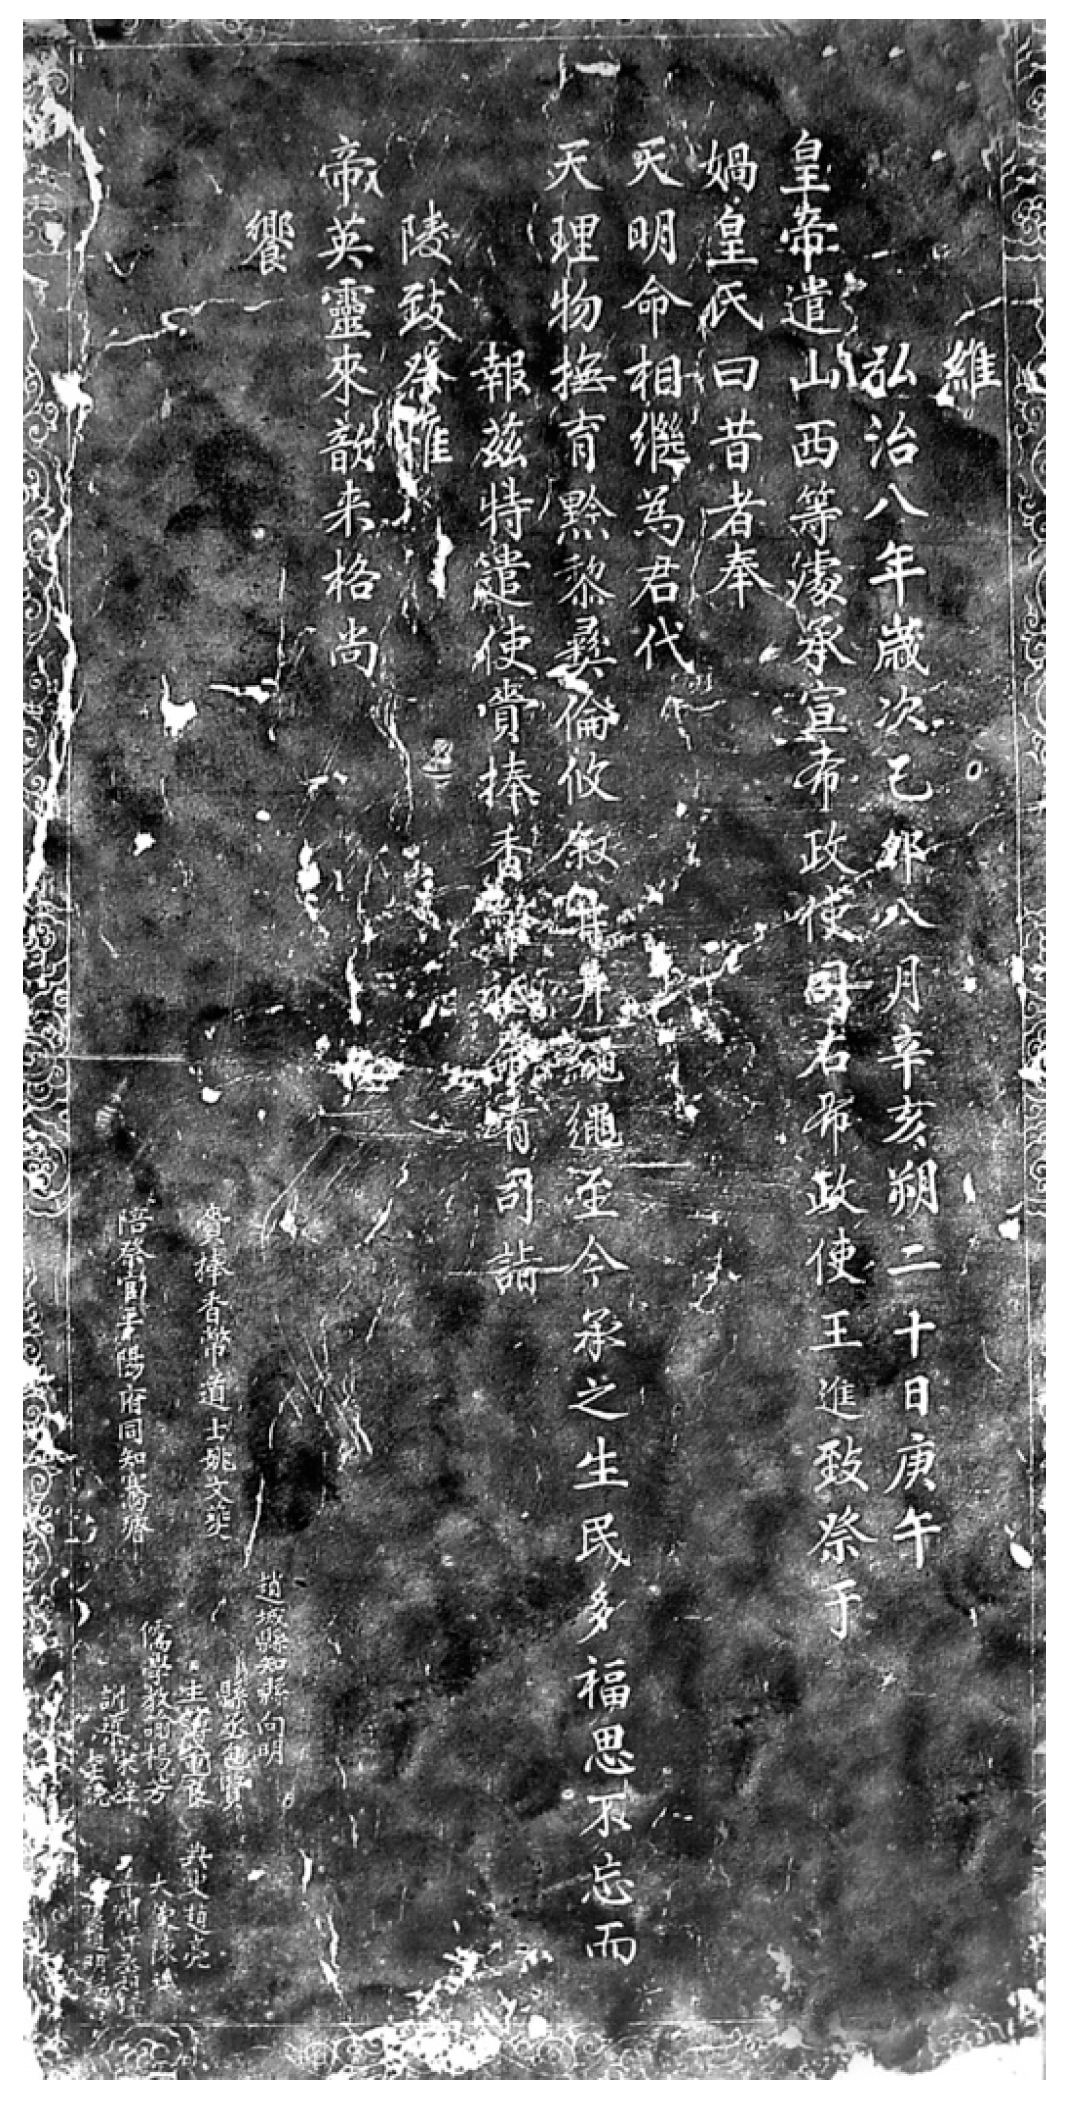 維
弘治八年歲次乙卯八月辛亥朔二十日庚午
皇帝遣山西等處承宣布政使司右布政使王進致祭于
媧皇氏曰昔者奉
天明命相繼為君代
天理物撫育黔黎彝倫攸敘井井繩繩至今承之生民多福思不忘而
報兹特遣使賫捧香幣祗命有司詣
陵致祭惟
帝英靈來歆来格尚
饗
賫捧香幣道士姚文
陪祭官平陽府同知
趙城縣知縣向明
縣丞包賢
主簿
儒學教諭楊芳
訓導
典史趙亮
大使陳